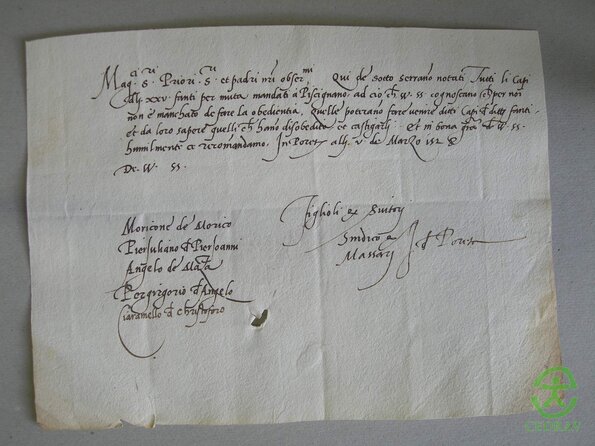 Mag.ci S.ri Priori S.ri et padri nri obser.mi Qui de sotto serrano notati Tutti li Capi
alli xxv fanti per muta mandati à Piscignano, ad ciò ch W. SS. cognoscano ch per noi
non è manchato de fare la obedientia, Quelle potrano fare venire ditti Capi et ditti fanti
et da loro sapere quelli ch hano disobedito et castigarli. Et in bona gra de W. SS.
humilmente ce recomandamo. In Poret alli v de Marzo
De W. SS.
Moricone de Morico
Pierjuliano d Pierjoanni
Angelo de
Pergrigorio d Angelo
Ciaramello d Christoforo
Figlioli et Suitori
Sindico et
Massari d
CEDRAV